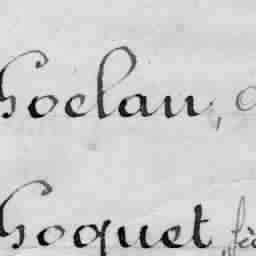 Goelau,
Goquet,